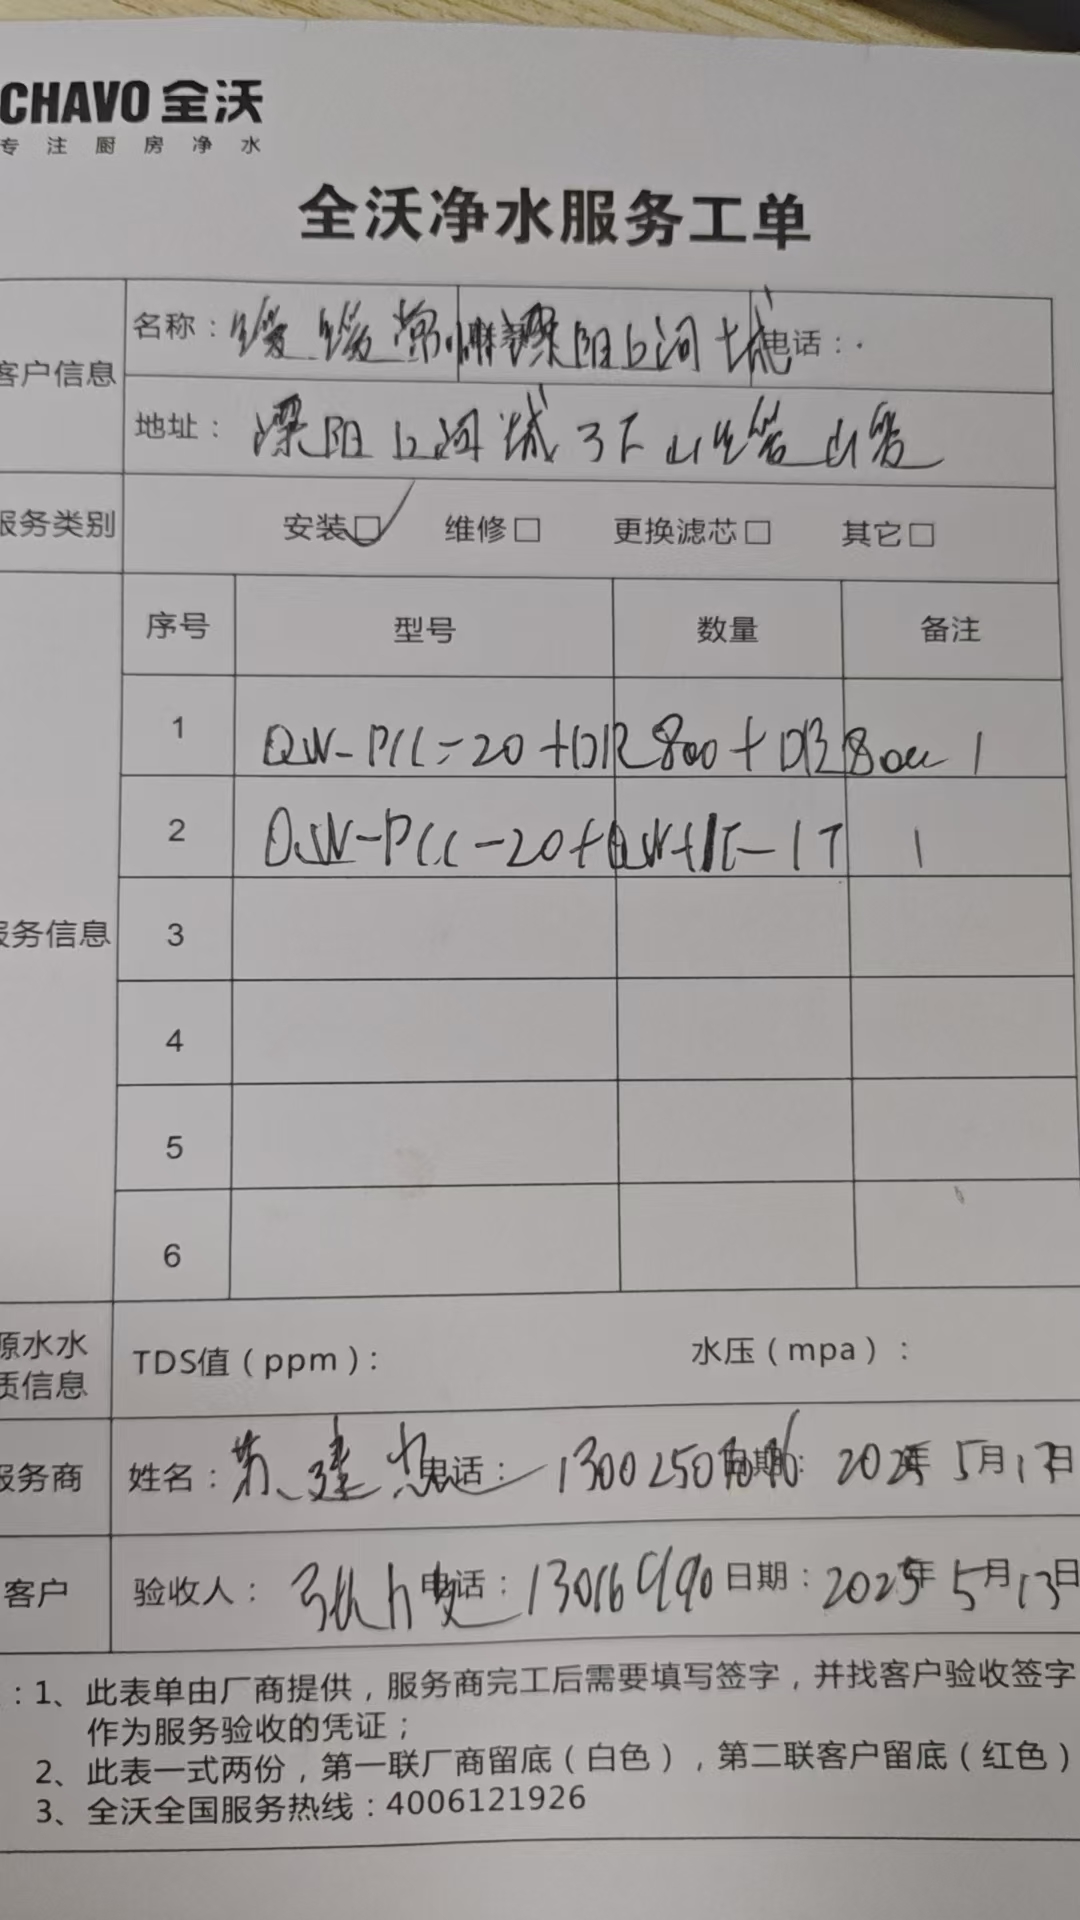 CHAVO 全沃
专注厨房净水
全沃净水服务工单
客户信息
名称： 溧阳上河城 电话：
地址： 溧阳上河城
服务类别 安装□ 维修□ 更换滤芯□ 其它□
序号 型号 数量 备注
1 QW-PCC-20+DR800+DR800 1
2 QW-PCC-20+ 1
服务信息
3
4
5
6
原水水质信息
TDS值（ppm）： 水压（mpa）：
服务商 姓名： 电话： 日期： 2025年5月17日
客户 验收人： 电话： 日期： 2025年5月13日
：1、此表单由厂商提供，服务商完工后需要填写签字，并找客户验收签字
作为服务验收的凭证；
2、此表一式两份，第一联厂商留底（白色），第二联客户留底（红色）
3、全沃全国服务热线：4006121926